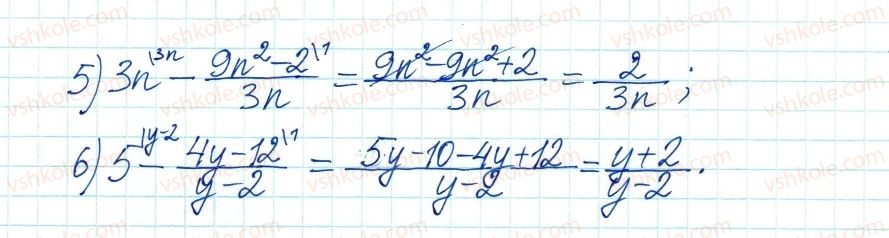 5) 3n^{\3n} - \frac{9n^2-2^{\1}}{3n} = \frac{9n^2-9n^2+2}{3n} = \frac{2}{3n};
6) 5^{\y-2} - \frac{4y-12^{\1}}{y-2} = \frac{5y-10-4y+12}{y-2} = \frac{y+2}{y-2}.
vshkole.com